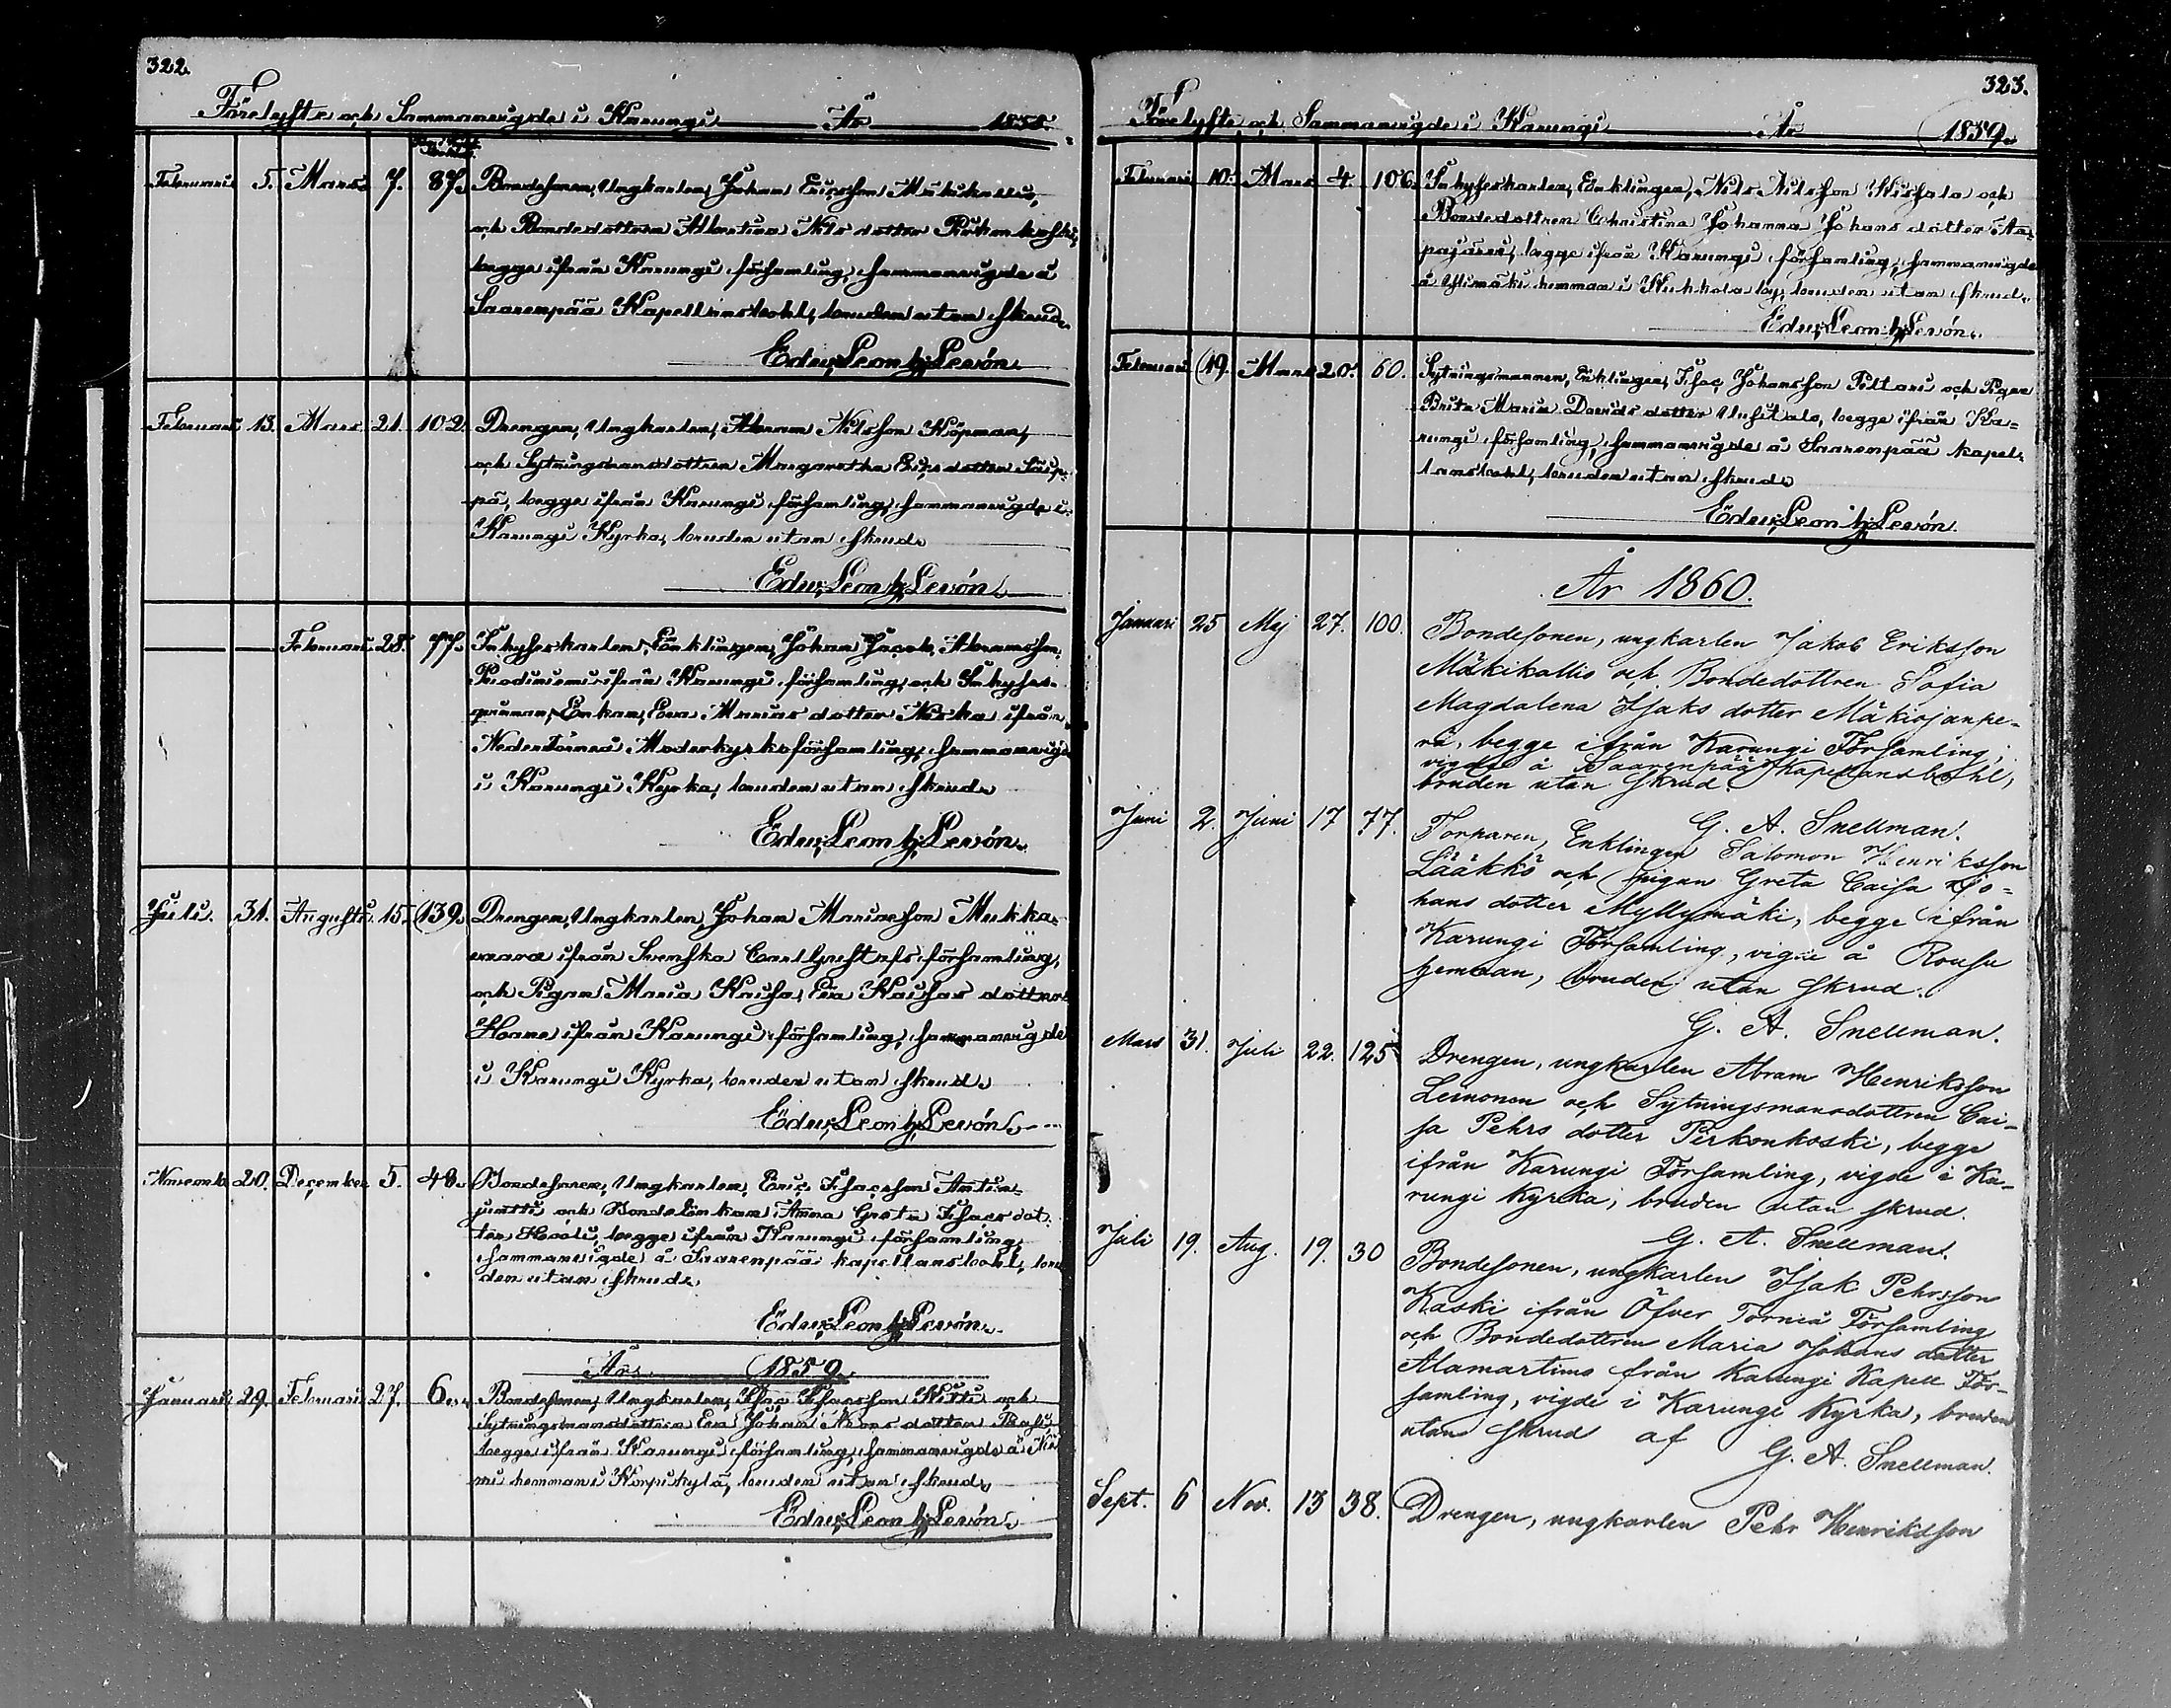 322.
Förelyste och Sammanvigde i Karungi År 1858.
Februari 5. Mars 7. 87. Bondesonen, Ungkarlen, Johan Ericsson Mäkikallio,
och Bondedottren Albertina Nils dotter Pirkonkoski,
begge ifrån Karungi församling, sammanvigde å
Saarenpää Kapellansbohl, bruden utan skrud.
Edv. Leonh. Levón.
Februari 13. Mars 21. 102. Drengen, Ungkarlen, Abram Nilsson Köpman,
och Sytningsmansdottren Margaretha Erics dotter
begge ifrån Karungi församling, sammanvigde i
Karungi Kyrka, bruden utan skrud.
Edv. Leonh. Levón.
Februari 28. 77. Inhyseskarlen, Enklingen, Johan Jacob Abramsson
ifrån Karungi församling, och Inhyses-
qvinnan, Enkan, Eva Marias dotter Niska ifrån
Neder Torneå Moderkyrkoförsamling, sammanvigde
i Karungi Kyrka, bruden utan skrud.
Edv. Leonh. Levón.
Juli. 31. Augusti. 15. 139. Drengen, Ungkarlen, Johan Mariasson Mukka-
vaara ifrån Svenska Carl Gustafs församling,
och Pigan Maria Kaisa Eva Kaisas dotter
ifrån Karungi församling, sammanvigde
i Karungi Kyrka, bruden utan skrud.
Edv. Leonh. Levón.
November 20. December 5. 40. Bondesonen, Ungkarlen, Eric Isacsson Antin-
juntti och Bondeenkan Anna Greta Isacs dot-
ter Hooli, begge ifrån Karungi församling,
sammanvigde å Saarenpää kapellansbohl, bru-
den utan skrud.
Edv. Leonh. Levón.
År 1859.
Januari 29. Februari 27. 6. Bondesonen, Ungkarlen, Isac Isacsson och
Sytningsmansdottren Eva Johan dotter
begge ifrån Karungi församling, sammanvigde å
hemman i Korpikylä, bruden utan skrud.
Edv. Leonh. Levón.
323.
Förelyste och Sammanvigde i Karungi År 1859.
Februari 10. Mars 4. 106. Inhyseskarlen, Enklingen, Nils Nilsson och
Bondedottren Christina Johanna Johans dotter Aa-
pajärvi, begge ifrån Karungi församling, sammanvigde
å Ylimäki hemman i Kukkola by, bruden utan skrud.
Edv. Leonh. Levón.
Februari 19. Mars 20. 60. Sytningsmannen, Enklingen, Isac Johansson Pittari och Pigan
Brita Maria Davids dotter Uusitalo, begge ifrån Ka-
rungi församling, sammanvigde å Saarenpää kapel-
lansbohl, bruden utan skrud.
Edv. Leonh. Levón.
År 1860.
Januari 25 Maj 27. 100. Bondesonen, ungkarlen Jakob Eriksson
Mäkikallio och Bondedottren Sofia
Magdalena Isaks dotter Mäkiojanpe-
rä, begge ifrån Karungi Församling,
vigde å Saarenpää Kapellansbohl,
bruden utan skrud.
G. A. Snellman.
Juni 2. Juni 17 77. Torparen, Enklingen Salomon Henriksson
Lääkkö och pigan Greta Caisa Jo-
hans dotter Myllymäki, begge ifrån
Karungi Församling, vigde å Rousu
hemman, bruden utan skrud.
G. A. Snellman.
Mars 31. Juli 22. 125 Drengen, ungkarlen Abram Henriksson
Leinonen och Sytningsmansdottren Cai-
sa Pehrs dotter Pirkonkoski, begge
ifrån Karungi Församling, vigde i Ka-
rungi Kyrka, bruden utan skrud.
G. A. Snellman.
Juli 19. Aug. 19. 30 Bondesonen, ungkarlen Isak Pehrsson
Kaski ifrån Öfver Torneå Församling
och Bondedottren Maria Johans dotter
Alamartimo från Karungi Kapell För-
samling, vigde i Karungi Kyrka, bruden
utan skrud af G. A. Snellman.
Sept. 6 Nov. 13 38. Drengen, ungkarlen Pehr Henriksson